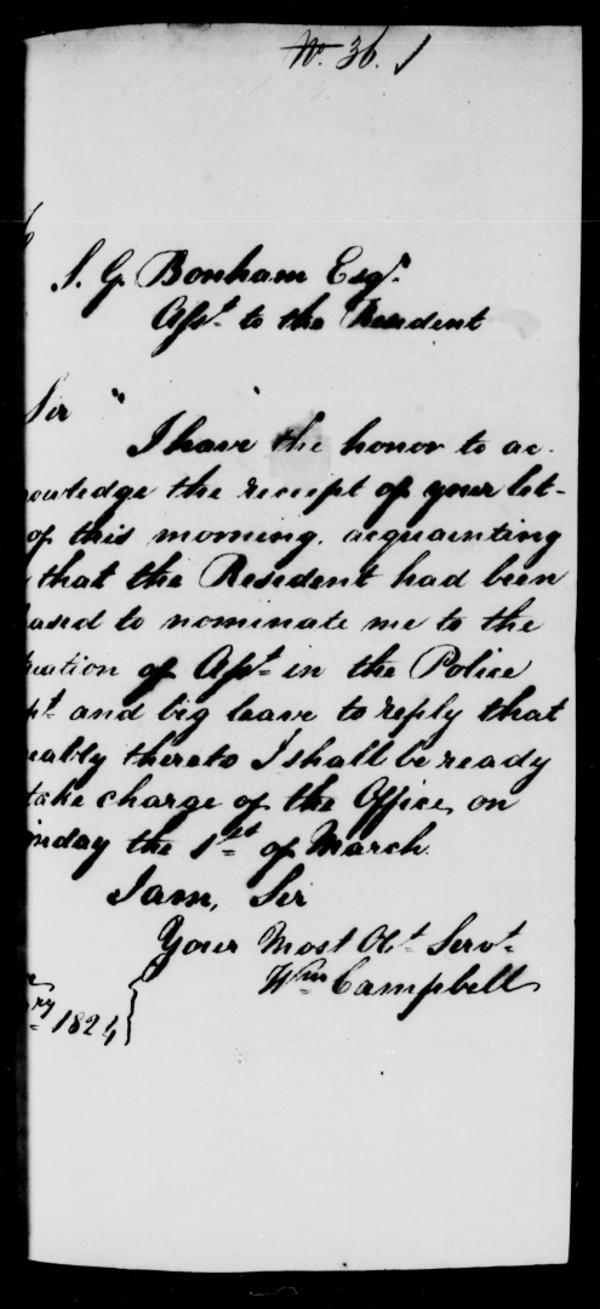 No. 36.
S. G. Bonham Esqr.
Asst. to the Resident
Sir
I have the honor to ac-
nowledge the receipt of your let-
of this morning. acquainting
that the Resident had been
ased to nominate me to the
uation of Asst. in the Police
pt. and beg leave to reply that
eably thereto I shall be ready
take charge of the Office, on
onday the 1st of March.
I am, Sir
Your Most Obt. Servt.
Wm Campbell
ry 1824